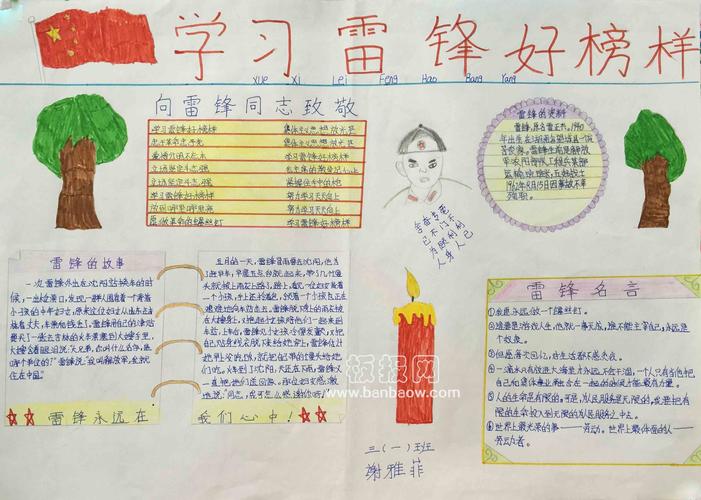 学习雷锋好榜样
xue xi Lei Feng Hao Bang Yang
向雷锋同志致敬
学习雷锋好榜样
忠于革命忠于党
爱憎分明不忘本
立场坚定斗志强
立场坚定斗志强
学习雷锋好榜样
愿做革命的螺丝钉
集体主义思想放光芒
集体主义思想放光芒
学习雷锋好榜样
毛主席的教导记心上
紧握住手中的枪
努力学习天天向上
努力学习天天向上
雷锋的资料
雷锋,原名雷正兴。1940
年出生在湖南省望城县一个
贫农家。
1962年8月15日因事故不幸
殉职。
雷锋的故事
一次雷锋外出在沈阳站换车的时
候,一出检票口,发现一群人围着一个背着
小孩的中年妇女,原来这位妇女从山东去吉
林看丈夫,车票和钱丢了。雷锋用自己的津贴
费买了一张去吉林的火车票塞到大嫂手里,
大嫂含着眼泪说:“大兄弟,你叫什么名字,是
哪个单位的?”雷锋说:“我叫解放军,就
住在中国。”
五月的一天,雷锋冒雨要去沈阳,他为
了赶早车,早晨五点多就起来,带了几个馒
头就披上雨衣上路了,路上,看见一位妇女背着
一个小孩,手上还领着一个小女孩也正艰
难地向车站走去。雷锋脱下身上的雨衣披
在大嫂身上,又抱起小女孩陪他们一起来到
车站,上车后,雷锋见小女孩冷得发颤,又把
自己的贴身线衣脱下来给她穿上,雷锋估计
她早上也没吃饭,就把自己带的馒头给她
们吃。火车到了沈阳,天还在下雨,雷锋又
一直把她们送到家。那位妇女感激
地说:“同志,我可怎么感谢你呀!”
雷锋永远在
我们心中!
三(一)班
谢雅菲
雷锋名言
①我愿永远做一个螺丝钉。
③但愿每次回忆,对生活都不感负疚。
④一滴水只有放进大海里才永远不会干涸,一个人只有当他把
自己和集体事业融合在一起的时候才能最有力量。
⑤人的生命是有限的,可是,为人民服务是无限的,我要把有
限的生命,投入到无限的为人民服务之中去。
⑥世界上最光荣的事——劳动。世界上最体面的人——
劳动者。
板报网
www.banbaow.com